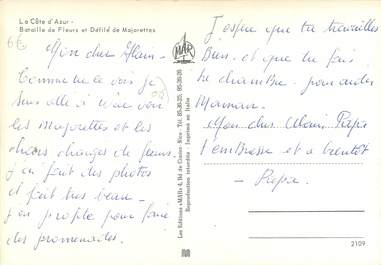 La Côte d'Azur -
Bataille de Fleurs et Défilé de Majorettes
6€
Mon cher Alain -
Comme tu le vois je
suis allé à Nice voir
les Majorettes et les
chars chargés de fleurs
j'ai fait des photos
il fait très beau -
j'en profite pour faire
des promenades.
MAR
Les Editions «MAR»
Reproduction interdite - Imprimé en Italie
J'espère que tu travailles
Bien et que tu fais
la chambre pour aider
Maman.
Mon cher Alain Papa
t'embrasse et a bientôt
- Papa -
2109